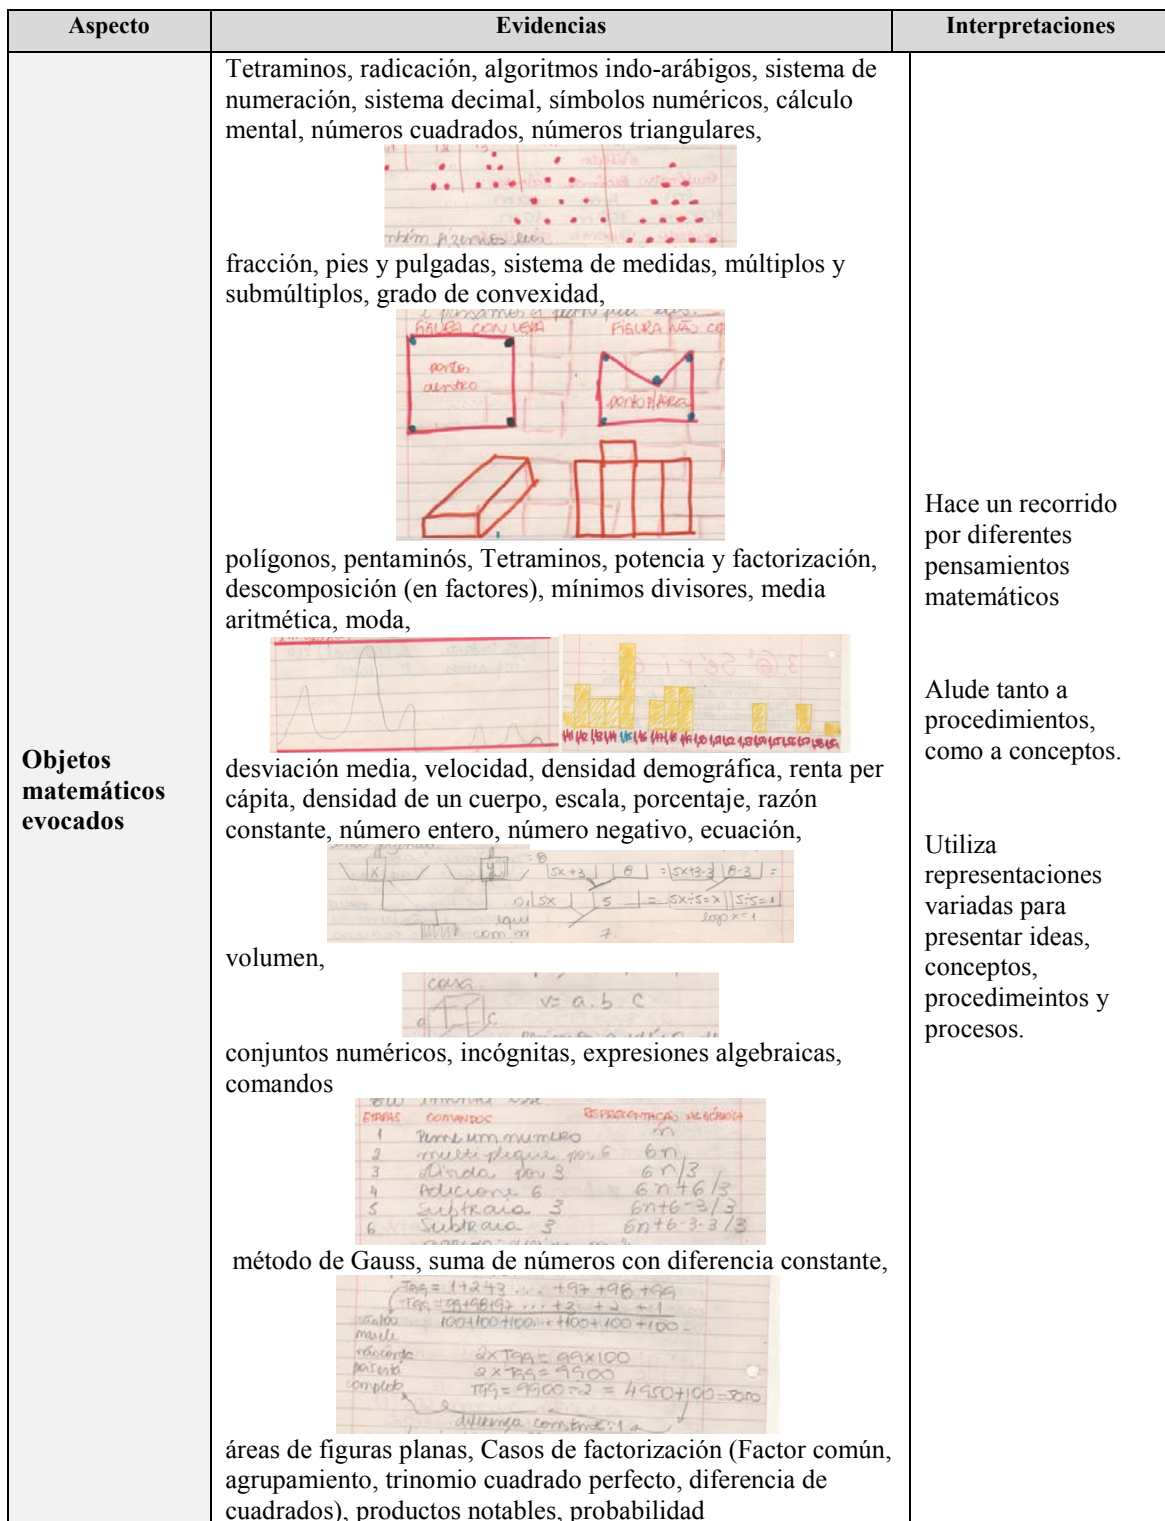 Aspecto
Evidencias
Interpretaciones
Objetos
matemáticos
evocados
Tetraminos, radicación, algoritmos indo-arábigos, sistema de
numeración, sistema decimal, símbolos numéricos, cálculo
mental, números cuadrados, números triangulares,
fracción, pies y pulgadas, sistema de medidas, múltiplos y
submúltiplos, grado de convexidad,
FIGURA CONVEXA
FIGURA NÃO CO
pontos
dentro
ponto p/fora
polígonos, pentaminós, Tetraminos, potencia y factorización,
descomposición (en factores), mínimos divisores, media
aritmética, moda,
desviación media, velocidad, densidad demográfica, renta per
cápita, densidad de un cuerpo, escala, porcentaje, razón
constante, número entero, número negativo, ecuación,
x y 5x+3 8 =5x+3-3 8-3 =
5x 5 = 5x÷5=x 5÷5=1
logo x=1
volumen,
casa
v= a.b.c
a c
conjuntos numéricos, incógnitas, expresiones algebraicas,
comandos
ETAPAS COMANDOS REPRESENTAÇÃO ALGÉBRICA
1 Pense um numero n
2 multiplique por 6 6n
3 Divida por 3 6n/3
4 Adicione 6 6n+6/3
5 Subtraia 3 6n+6-3/3
6 Subtraia 3 6n+6-3-3/3
método de Gauss, suma de números con diferencia constante,
T99 = 1+2+3 ... +97+98+99
T99 = 99+98+97 ... +3+2+1
100+100+100... +100+100+100
2xT99 = 99x100
2xT99 = 9900
completo T99 = 9900÷2 = 4950+100=5050
diferença constante: 1
áreas de figuras planas, Casos de factorización (Factor común,
agrupamiento, trinomio cuadrado perfecto, diferencia de
cuadrados), productos notables, probabilidad
Hace un recorrido
por diferentes
pensamientos
matemáticos
Alude tanto a
procedimientos,
como a conceptos.
Utiliza
representaciones
variadas para
presentar ideas,
conceptos,
procedimeintos y
procesos.